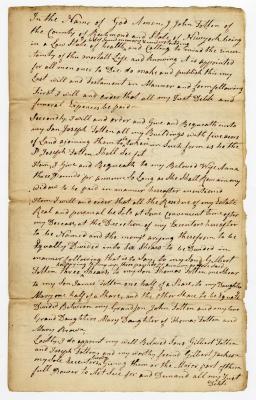 In the Name of God Amen, I John Totten of
the County of Richmond and State of Newyork being
in a Low State of health, and Calling to mind the Uncer-
tainty of this mortall Life and knowing it is appointed
for all men once to Die do make and publish this my
Last will and testament in Manner and form following
First I will and order that all my Just Debts and
funeral Expences be paid
Secondly I will and order and Give and Bequeath unto
my Son Joseph Totten all my Buildings with five acres
of Land ajoining them to be taken in Such form as he the
Sd Joseph Totten Shall See fit
Item I Give and Bequeath to my Beloved Wife
three Pounds pr annum So Long as She Shall Remain my
widow to be paid in manner hereafter mentioned
Item I will and order that all the Residue of my Estate
Real and personal be Sold at Some Convenient time after
my Deceas, at the Discretion of my Executors hereafter
to be Named and the money arising therefrom to be
Equally Divided into Six Shares to be Divided in
manner following that is to Say to my Son Gilbert
Totten Shares to my Son Thomas Totten
to my Son James Totten one half of a Share, to my Daughter
Mary one half of a Share, and the other Share to be Equally
Divided Between my Grandson John Totten and my two
Grand Daughters Mary Daughter of Thomas Totten and
Mary Brown
Lastly I do appoint my well Beloved Sons Gilbert Totten
and Joseph Totten and my worthy friend Gilbert Jackson
my Sole Executors Giving them or the Major part of them
full Power to and Demand all my Just
Debts